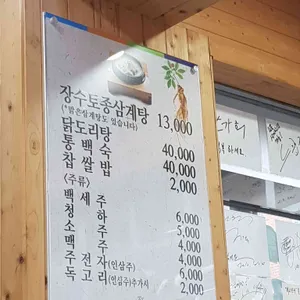 장수토종삼계탕 13,000
(*맑은삼계탕도 있습니다)
닭도리탕
통백숙 40,000
찹쌀밥 40,000
〈주류〉 2,000
백세주
청하 6,000
소주 5,000
맥주 4,000
주전자(인삼주) 4,000
독고리(인삼주)추가시 6,000
2,000